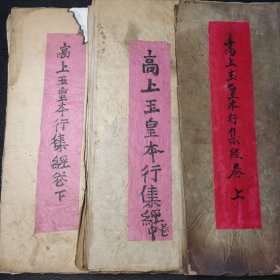 高上玉皇本行集經卷上
高上玉皇本行集經卷中
高上玉皇本行集經卷下